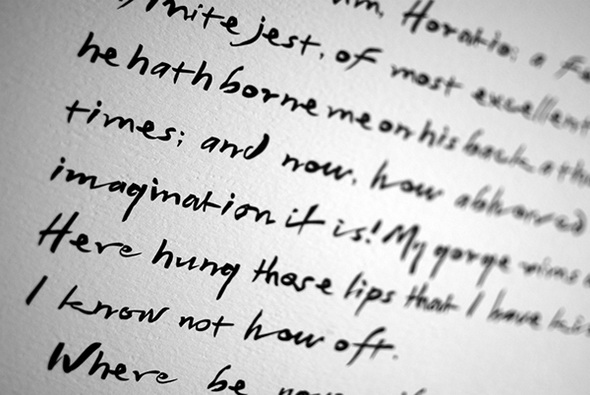 him, Horatio: a fe
infinite jest, of most excellent
he hath borne me on his back a thou
times; and now, how abhorred
imagination it is! My gorge rims
Here hung those lips that I have kis
I know not how oft.
Where be